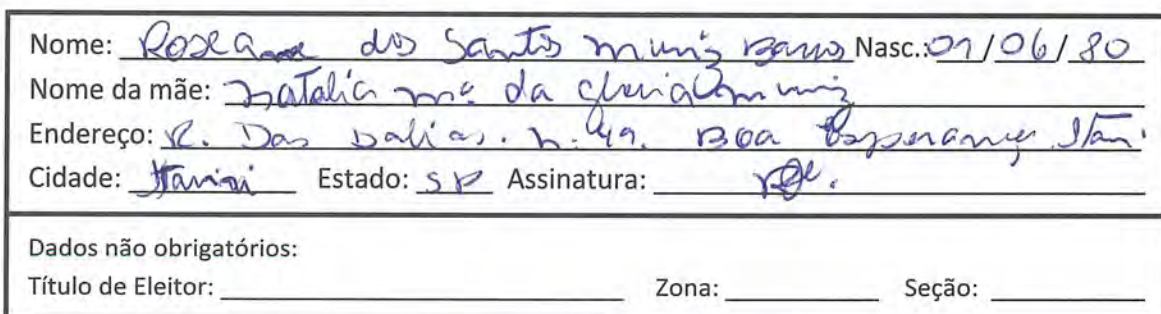 Nome: Roseane dos Santos Muniz Barros Nasc.: 01/06/80
Nome da mãe: Natalia Mª da Muniz
Endereço: R. Das Dalias. n. 49. Boa Esperança
Cidade: Estado: SP Assinatura:
Dados não obrigatórios:
Título de Eleitor: Zona: Seção: